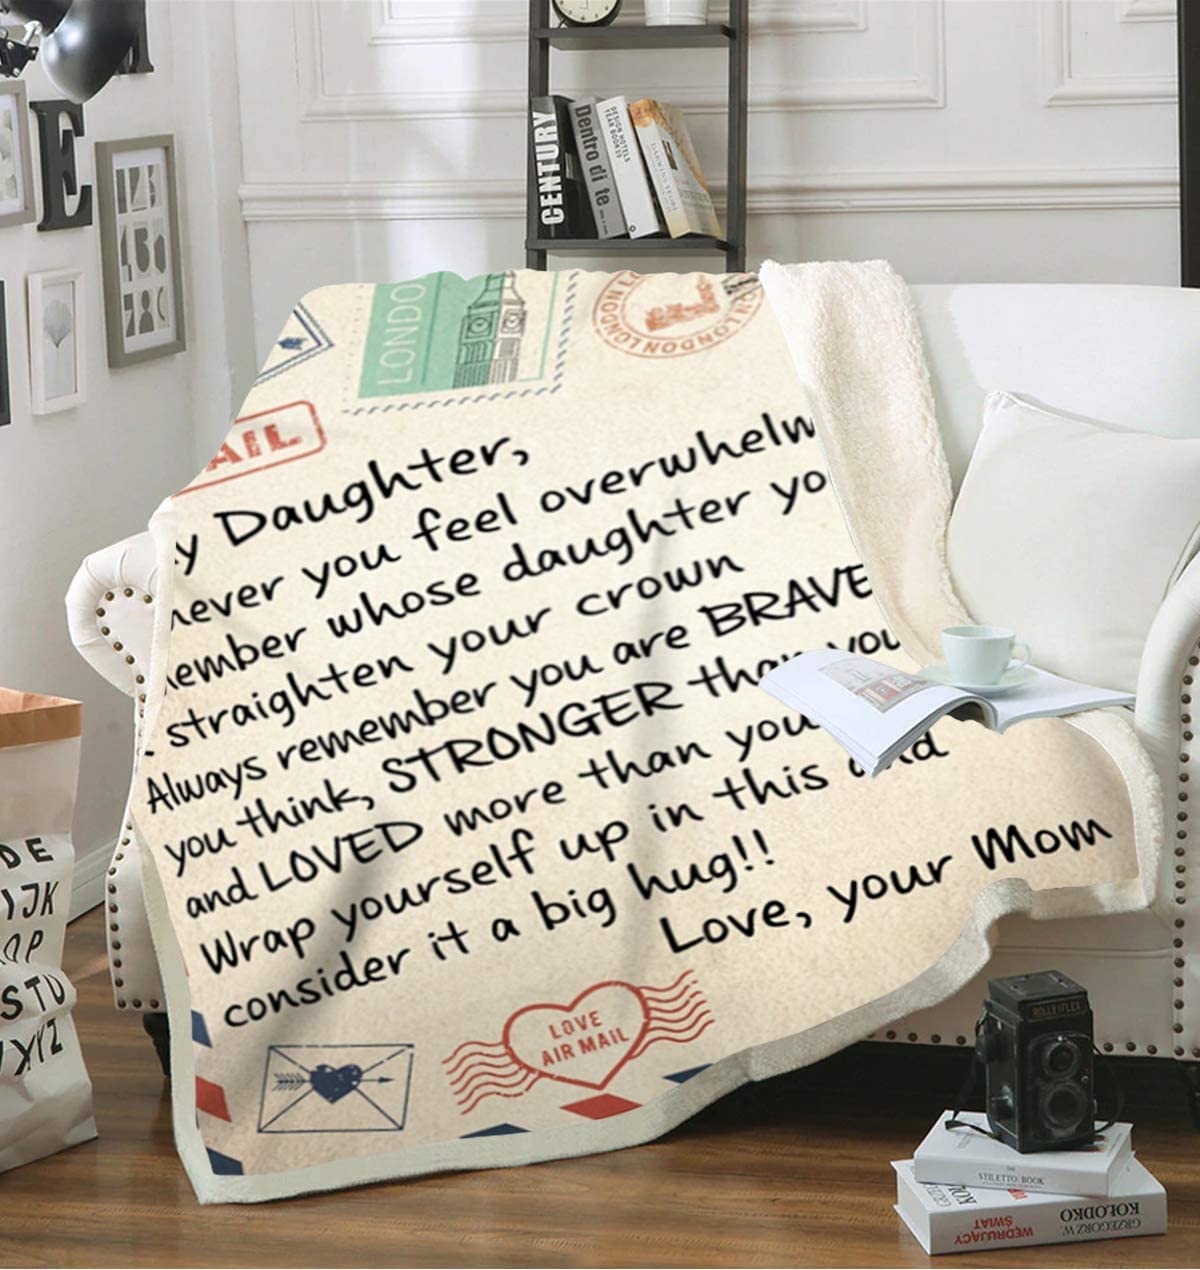 E
CENTURY
Dentro di te
DESIGN HOTELS
YEAR BOOK
LONDO
LONDON LONDON
AIL
y Daughter,
never you feel overwhelm
ember whose daughter yo
straighten your crown
Always remember you are BRAVE
you think, STRONGER than you
and LOVED more than you
Wrap yourself up in this and
consider it a big hug!!
Love, your Mom
LOVE
AIR MAIL
DE
IJK
OP
STU
XYZ
ROLLEIFLEX
STILETTO BOOK
GRZEGORZ W.
KOŁODKO
WĘDRUJĄCY
ŚWIAT